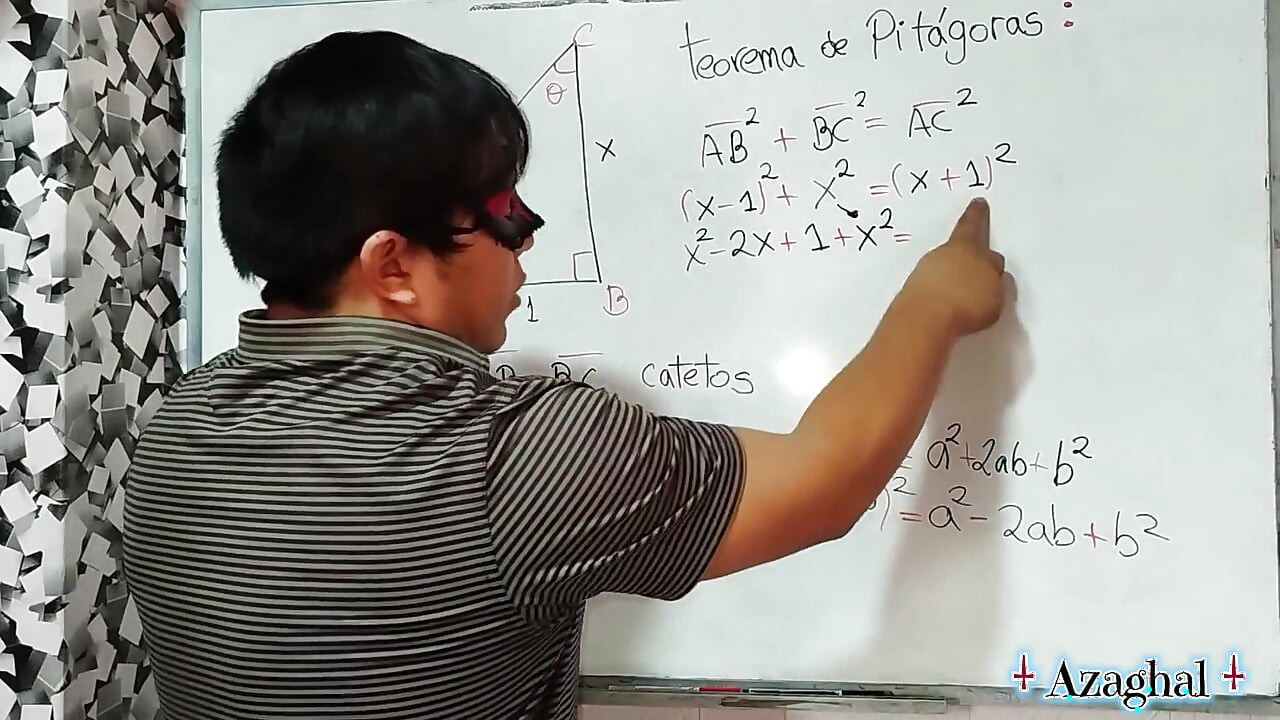 teorema de Pitágoras:
C
θ
x
AB² + BC² = AC²
(x-1)² + x² = (x+1)²
x²-2x+1+x²=
1
B
BC catetos
= a²+2ab+b²
)² = a²-2ab+b²
Azaghal